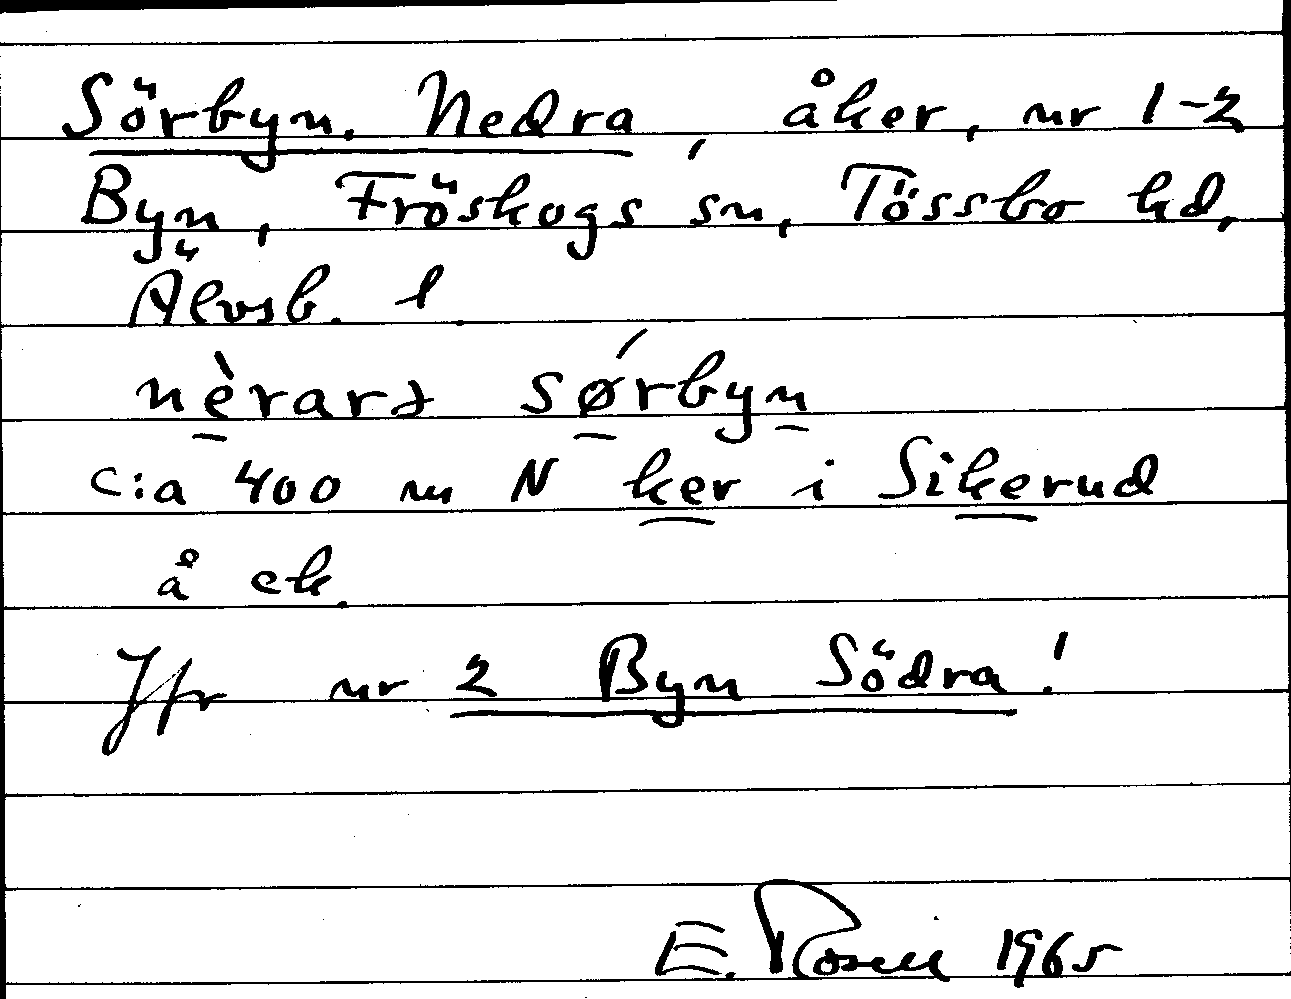 Sörbyn, Nedra, åker, nr 1-2
Byn, Fröskogs sn, Tössbo hd,
Älvsb. l.
nèrarə sǿrbyn
c:a 400 m N ker i Sikerud
å ek.
Jfr nr 2 Byn Södra!
E. Rosén 1965